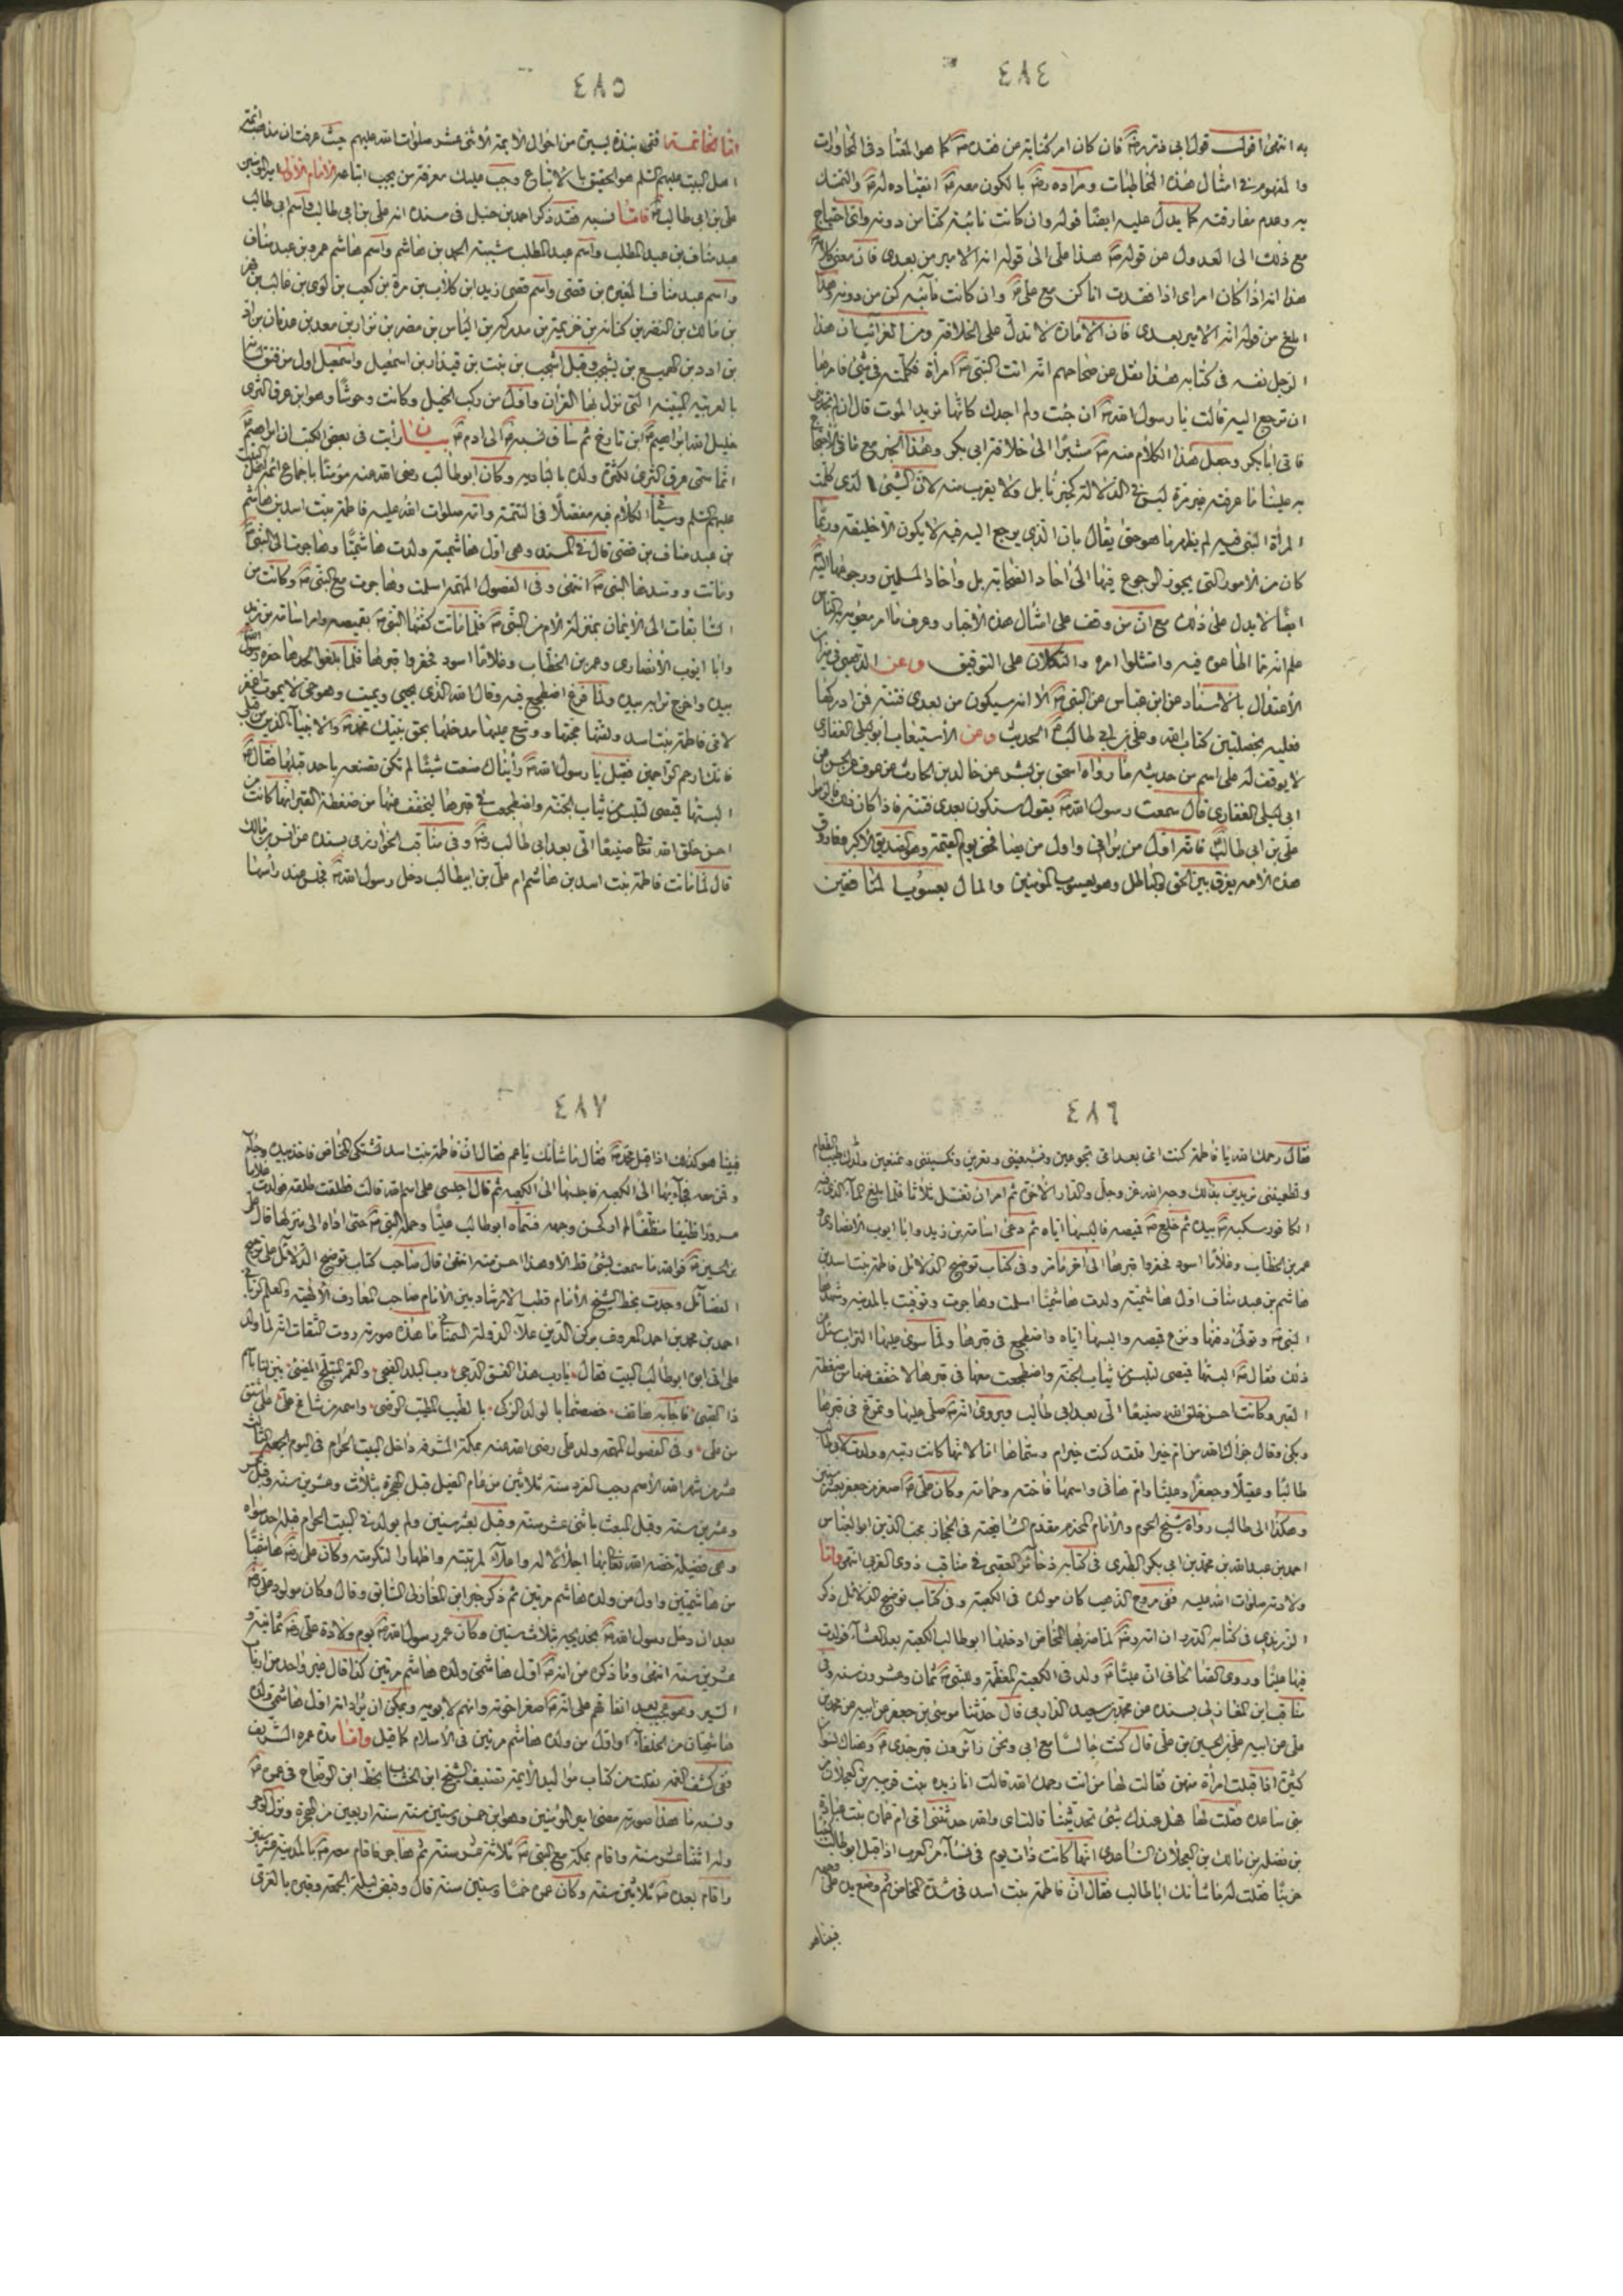 ٤٨٤
به انتهى اقول قول ابى ذر رضه فان كان امر كناية عن فقده كما هو المعتاد فى المحاورات
والمفهوم فى امثال هذه المخاطبات ومراده رضه بالكون معه انقياده له والتمسك
به وعدم مفارقته كما يدل عليه ايضا قوله وان كانت نائبة كنا من دونه واتى احتياج
مع ذلك الى العدول عن قوله هذا على الى قوله انه الامير من بعدى فان معنى
هذا انه اذا كان امر اى اذا فقدت انا كن مع على وان كانت نائبة كن من دونه وهذا
ابلغ من قوله انه الامير بعدى فان الامارة لا تدل على الخلافة ومن الغرائب ان هذا
الرجل نفسه فى كتابه هذا نقل عن صحاحهم انه اتت النبى امرأة فكلمته فى شئ فامرها
ان ترجع اليه قالت يا رسول الله ان جئت ولم اجدك كانها تريد الموت قال ان لم تجدينى
فاتى ابا بكر وجعل هذا الكلام منه مشيرا الى خلافة ابى بكر وهذا الخبر مع ما فى الاحتجاج
به علينا ما عرفته غير مرة ليس فى الدلالة كخبرنا بل ولا يقرب منه لان الشئ الذى كلمت
المرأة النبى فيه لم يظهر ما هو حتى يقال بان الذى يرجع اليه فيه لا يكون الا خليفته وربما
كان من الامور التى يجوز الرجوع فيها الى احاد الصحابة بل واحاد المسلمين ورجوعها اليه
ايضا لا يدل على ذلك مع ان من وقف على امثال هذه الاخبار وعرف ما امر معوية به الناس
علم انه مما الهاهم فيه وامتثلوا امره والتكلان على التوفيق وعن الذهبى فى ميزان
الاعتدال بالاسناد عن ابن عباس عن النبى الا انه سيكون من بعدى فتنة فمن ادركها
فعليه بخصلتين كتاب الله وعلى بن ابى طالب الحديث وعن الاستيعاب ابو ليلى الغفارى
لا يوقف له على اسم من حديثه ما رواه اسحق بن بشر عن خالد بن الحارث عن عوف عن الحسن عن
ابى ليلى الغفارى قال سمعت رسول الله يقول ستكون بعدى فتنة فاذا كان ذلك فالزموا
على بن ابى طالب فانه اول من يرانى واول من يصافحنى يوم القيمة وهو الصديق الاكبر وهو فاروق
هذه الامة يفرق بين الحق والباطل وهو يعسوب المؤمنين والمال يعسوب المنافقين
٤٨٥
اما الخاتمة ففى نبذة يسيرة من احوال الائمة الاثنى عشر صلوات الله عليهم حيث عرفت ان مذهب ائمة
اهل البيت عليهم السلم هو الحقيق بالاتباع وجب عليك معرفة من يجب اتباعه الامام الاول امير المؤمنين
على بن ابى طالب فاما نسبه فقد ذكر احمد بن حنبل فى مسنده انه على بن ابى طالب واسم ابى طالب
عبد مناف بن عبد المطلب واسم عبد المطلب شيبة الحمد بن هاشم واسم هاشم عمرو بن عبد مناف
واسم عبد مناف المغيرة بن قصى واسم قصى زيد ابن كلاب بن مرة بن كعب بن لوى بن غالب بن فهر
بن مالك بن النضر بن كنانة بن خزيمة بن مدركة بن الياس بن مضر بن نزار بن معد بن عدنان بن اد
بن ادد بن الهميسع بن يشجب وقيل اشجب بن نبت بن قيدار بن اسمعيل واسمعيل اول من فتق لسانه
بالعربية المبينة التى نزل بها القران واول من ركب الخيل وكانت وحوشا وهو ابن عرق الثرى
خليل الله ابراهيم ابن تارخ ثم ساق نسبه الى ادم بيان رايت فى بعض الكتب ان ابراهيم
انما سمى عرق الثرى لكثرة ولده بالبادية وكان ابو طالب رضى الله عنه مؤمنا باجماع ائمة اهل البيت
عليهم السلم وسياتى الكلام فيه مفصلا فى التتمة وامه صلوات الله عليه فاطمة بنت اسد بن هاشم
بن عبد مناف بن قصى قال فى المسند وهى اول هاشمية ولدت هاشميا وهاجرت الى النبى
وماتت وشهدها النبى انتهى وفى الفصول المهمة اسلمت وهاجرت مع النبى وكانت من
السابقات الى الايمان بمنزلة الام من النبى فلما ماتت كفنها النبى بقميصه وامر اسامة بن زيد
وابا ايوب الانصارى وعمر بن الخطاب وغلاما اسود فحفروا قبرها فلما بلغوا لحدها حفره رسول الله
بيده واخرج ترابه بيده ولما فرغ اضطجع فيه وقال الله الذى يحيى ويميت وهو حى لا يموت اغفر
لامى فاطمة بنت اسد ولقنها حجتها ووسع عليها مدخلها بحق نبيك محمد والانبياء الذين من قبلى
فانك ارحم الراحمين فقيل يا رسول الله رأيناك صنعت شيئا لم تكن تصنعه باحد قبلها فقال
البستها قميصى لتلبس من ثياب الجنة واضطجعت فى قبرها ليخفف عنها من ضغطة القبر انها كانت من
احسن خلق الله تعالى صنيعا الى بعد ابى طالب رضه وفى مناقب الخوارزمى بسنده عن انس بن مالك
قال لما ماتت فاطمة بنت اسد بن هاشم ام على بن ابى طالب دخل رسول الله فجلس عند رأسها
٤٨٦
فقال رحمك الله يا فاطمة كنت امى بعد امى تجوعين وتشبعينى وتعرين وتكسينى وتمنعين نفسك طيب الطعام
وتطعمينى تريدين بذلك وجه الله عز وجل والدار الاخرة ثم امر ان تغسل ثلاثا فلما بلغ الماء الذى فيه
الكافور سكبه بيده ثم خلع قميصه فالبسها اياه ثم دعى اسامة بن زيد وابا ايوب الانصارى
عمر بن الخطاب وغلاما اسود فحفروا قبرها الى اخر ما مر وفى كتاب توضيح الدلائل فاطمة بنت اسد بن
هاشم بن عبد مناف اول هاشمية ولدت هاشميا اسلمت وهاجرت وتوفيت بالمدينة وشهدها
النبى وتولى دفنها ونزع قميصه والبسها اياه واضطجع فى قبرها ولما سوى عليها التراب سئل عن
ذلك فقال البستها قميصى لتلبس من ثياب الجنة واضطجعت معها فى قبرها لاخفف عنها من ضغطة
القبر وكانت احسن خلق الله صنيعا الى بعد ابى طالب ويروى انه صلى عليها وتمرغ فى قبرها
وبكى وقال جزاك الله من ام خيرا فلقد كنت خير ام وسماها اما لانها كانت ربته وولدت لابى طالب
طالبا وعقيلا وجعفرا وعليا وام هانى واسمها فاختة وجمانة وكان على اصغر من جعفر بعشر سنين
وهكذا الى طالب رواه شيخ الحرم والامام المحترم مقدم الشافعية فى الحجاز محب الدين ابو العباس
احمد بن عبد الله بن محمد بن ابى بكر الطبرى فى كتابه ذخائر العقبى فى مناقب ذوى القربى انتهى واما
ولادته صلوات الله عليه ففى مروج الذهب كان مولده فى الكعبة وفى كتاب توضيح الدلائل ذكر
الزرندى فى كتابه الدرر ان امه لما ضربها المخاض ادخلها ابو طالب الكعبة بعد العشاء فولدت
فيها عليا وروى القضاعى ان عليا ولد فى الكعبة المعظمة وللنبى ثمان وعشرون سنة وفى
مناقب ابن المغازلى بسنده عن محمد بن سعيد الدارمى قال حدثنا موسى بن جعفر عن ابيه عن محمد بن
على عن ابيه على بن الحسين بن على قال كنت جالسا مع ابى ونحن زائرون قبر جدى وهناك نسوان
كثيرة اذ اقبلت امرأة منهن فقلت لها من انت رحمك الله قالت انا زيدة بنت قريبة بن العجلان من
بنى ساعدة فقلت لها هل عندك شئ تحدثينا قالت اى والله حدثتنى امى ام عمارة بنت عبادة
بن نضلة بن مالك بن العجلان الساعدى انها كانت ذات يوم فى نساء من العرب اذ اقبل ابو طالب كئيبا
حزينا فقلت له ما شانك ابا طالب فقال ان فاطمة بنت اسد فى شدة المخاض ثم وضع يده على وجهه
فبينا هو
٤٨٧
فبينا هو كذلك اذ اقبل محمد فقال ما شانك يا عم فقال ان فاطمة بنت اسد تشتكى المخاض فاخذ بيده وجاء
وقمن معه فجاء بها الى الكعبة فاجلسها الى الكعبة ثم قال اجلسى على اسم الله قالت فطلقت طلقة فولدت غلاما
مسرورا نظيفا منظفا لم ار كحسن وجهه فسماه ابو طالب عليا وحمله النبى حتى اداه الى منزلها قال على
بن الحسين فوالله ما سمعت بشئ قط الا وهذا احسن منه انتهى قال صاحب كتاب توضيح الدلائل على ترجيح
الفضائل وجدت بخط الشيخ الامام قطب الارشاد بين الانام صاحب المعارف الالهية والعلم الربانى
احمد بن محمد بن احمد المعروف بركن الدين علاء الدولة السمنانى ما هذه صورته روت الثقات انه لما ولد
على اتى ابوه ابو طالب البيت فقال يا رب هذا الغسق الدجى رب البلد الفجى والقمر المبتلج المضئ بين لنا باسم
ذا الصبى فاجابه هاتف خصصتما بالولد الزكى بالطيب المطيب الرضى واسمه من شامخ على على اشتق
من على وفى الفصول المهمة ولد على رضى الله عنه بمكة المشرفة داخل البيت الحرام فى اليوم الجمعة الثالث
عشر من شهر الله الاصم رجب الفرد سنة ثلاثين من عام الفيل قبل الهجرة بثلاث وعشرين سنة وقيل بخمس
وعشرين سنة وقبل المبعث باثنى عشر سنة وقيل بعشر سنين ولم يولد فى البيت الحرام قبله احد سواه
وهى فضيلة خصه الله تعالى بها اجلالا له واعلاء لمرتبته واظهارا لتكرمته وكان على رضه هاشميا
من هاشميين واول من ولده هاشم مرتين ثم ذكر خبر ابن المغازلى السابق وقال وكان مولود على رضه
بعد ان دخل رسول الله بخديجة بثلاث سنين وكان عمر رسول الله يوم ولادة على رضه ثمانية و
عشرين سنة انتهى وما ذكره من انه اول هاشمى ولده هاشم مرتين كذا قال غير واحد من ارباب
السير وهو عجيب بعد اتفاقهم على انه اصغر اخوته وانهم لابويه ويمكن ان يراد انه اول هاشمى ولده
هاشميان من الخلفاء او اول من ولده هاشم مرتين فى الاسلام كما قيل واما مدة عمره الشريف
ففى كشف الغمة نقلت من كتاب مواليد الائمة تصنيف الشيخ ابن الخشاب بخط ابن الوضاح فى عمره
ونسبه ما هذا صورته مضى امير المؤمنين وهو ابن خمس وستين سنة سنة اربعين من الهجرة ونزل الوحى
وله اثنتا عشر سنة واقام بمكة مع النبى ثلاثة عشر سنة ثم هاجر فاقام معه بالمدينة عشر سنين
واقام بعده ثلاثين سنة وكان عمره خمسا وستين سنة قال وقبض ليلة الجمعة وقبره بالغرى